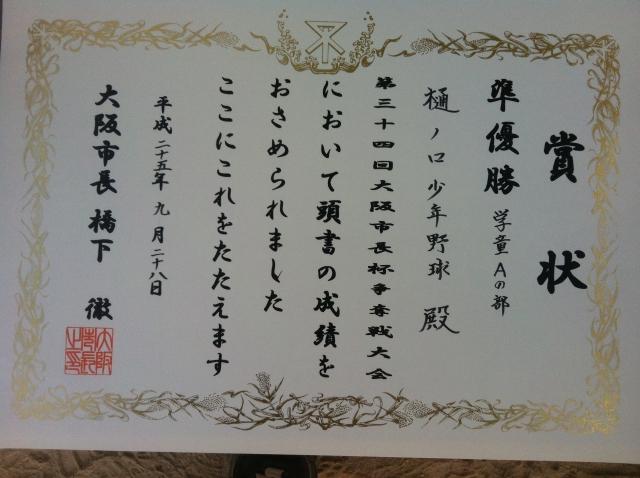 賞状
準優勝 学童Aの部
樋ノ口少年野球 殿
第三十四回大阪市長杯争奪戦大会
において頭書の成績を
おさめられました
ここにこれをたたえます
平成二十五年九月二十八日
大阪市長 橋下 徹
大阪市長之印